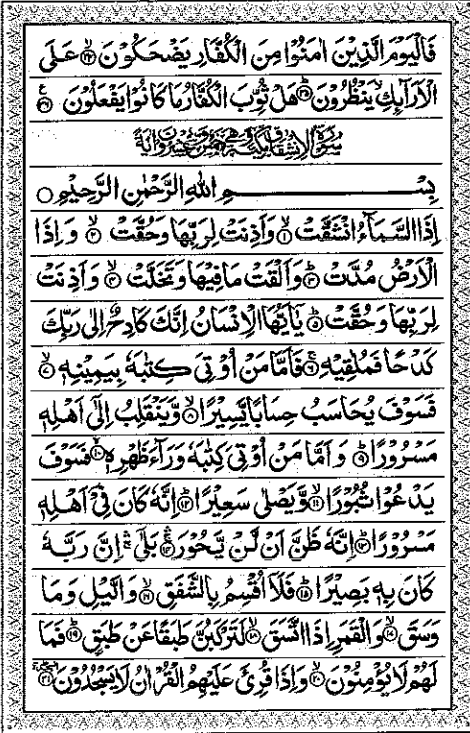 فَالْيَوْمَ الَّذِيْنَ اٰمَنُوْا مِنَ الْكُفَّارِ يَضْحَكُوْنَ ﴿۳۴﴾ عَلَى
الْاَرَآىِٕكِ يَنْظُرُوْنَ ﴿۳۵﴾ هَلْ ثُوِّبَ الْكُفَّارُ مَا كَانُوْا يَفْعَلُوْنَ ﴿۳۶﴾
سُوْرَةُ الْاِنْشِقَاقِ مَكِّيَّةٌ وَّهِيَ خَمْسٌ وَّعِشْرُوْنَ اٰيَةً
بِسْمِ اللّٰهِ الرَّحْمٰنِ الرَّحِيْمِ ○
اِذَا السَّمَآءُ انْشَقَّتْ ﴿۱﴾ وَاَذِنَتْ لِرَبِّهَا وَحُقَّتْ ﴿۲﴾ وَاِذَا
الْاَرْضُ مُدَّتْ ﴿۳﴾ وَاَلْقَتْ مَا فِيْهَا وَتَخَلَّتْ ﴿۴﴾ وَاَذِنَتْ
لِرَبِّهَا وَحُقَّتْ ﴿۵﴾ يٰۤاَيُّهَا الْاِنْسَانُ اِنَّكَ كَادِحٌ اِلٰى رَبِّكَ
كَدْحًا فَمُلٰقِيْهِ ﴿۶﴾ فَاَمَّا مَنْ اُوْتِيَ كِتٰبَهٗ بِيَمِيْنِهٖ ﴿۷﴾
فَسَوْفَ يُحَاسَبُ حِسَابًا يَّسِيْرًا ﴿۸﴾ وَّيَنْقَلِبُ اِلٰۤى اَهْلِهٖ
مَسْرُوْرًا ﴿۹﴾ وَاَمَّا مَنْ اُوْتِيَ كِتٰبَهٗ وَرَآءَ ظَهْرِهٖ ﴿۱۰﴾ فَسَوْفَ
يَدْعُوْا ثُبُوْرًا ﴿۱۱﴾ وَّيَصْلٰى سَعِيْرًا ﴿۱۲﴾ اِنَّهٗ كَانَ فِيْۤ اَهْلِهٖ
مَسْرُوْرًا ﴿۱۳﴾ اِنَّهٗ ظَنَّ اَنْ لَّنْ يَّحُوْرَ ﴿۱۴﴾ بَلٰۤى ۚ اِنَّ رَبَّهٗ
كَانَ بِهٖ بَصِيْرًا ﴿۱۵﴾ فَلَاۤ اُقْسِمُ بِالشَّفَقِ ﴿۱۶﴾ وَالَّيْلِ وَمَا
وَسَقَ ﴿۱۷﴾ وَالْقَمَرِ اِذَا اتَّسَقَ ﴿۱۸﴾ لَتَرْكَبُنَّ طَبَقًا عَنْ طَبَقٍ ﴿۱۹﴾ فَمَا
لَهُمْ لَا يُؤْمِنُوْنَ ﴿۲۰﴾ وَاِذَا قُرِئَ عَلَيْهِمُ الْقُرْاٰنُ لَا يَسْجُدُوْنَ ﴿۲۱﴾